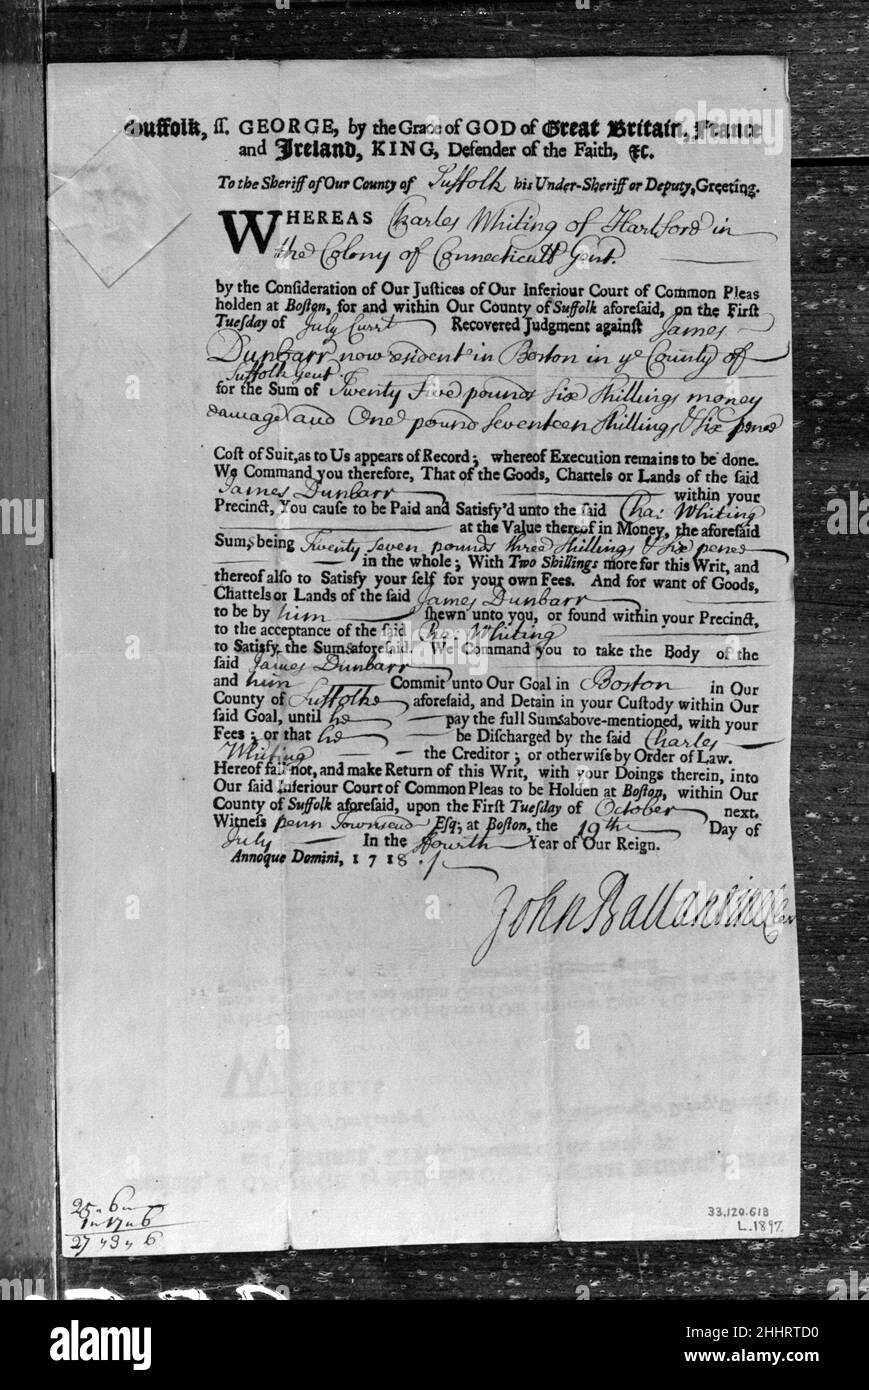 Suffolk, ss. GEORGE, by the Grace of GOD of Great Britain, France
and Ireland, KING, Defender of the Faith, &c.
To the Sheriff of Our County of Suffolk his Under-Sheriff or Deputy, Greeting.
WHEREAS Charles Whiting of Hartford in
the Colony of Connecticutt Gent.
by the Consideration of Our Justices of Our Inferiour Court of Common Pleas
holden at Boston, for and within Our County of Suffolk aforesaid, on the First
Tuesday of July Currt Recovered Judgment against James
Dunbarr now resident in Boston in ye County of
Suffolk Gent
for the Sum of Twenty Five pounds six shillings money
damage and One pound seventeen shillings & six pence
Cost of Suit, as to Us appears of Record; whereof Execution remains to be done.
We Command you therefore, That of the Goods, Chattels or Lands of the said
James Dunbarr within your
Precinct, You cause to be Paid and Satisfy'd unto the said Cha: Whiting
at the Value thereof in Money, the aforesaid
Sums, being Twenty seven pounds three shillings & six pence
in the whole; With Two Shillings more for this Writ, and
thereof also to Satisfy your self for your own Fees. And for want of Goods,
Chattels or Lands of the said James Dunbarr
to be by him shewn unto you, or found within your Precinct,
to the acceptance of the said Cha: Whiting
to Satisfy the Sums aforesaid. We Command you to take the Body of the
said James Dunbarr
and him Commit unto Our Goal in Boston in Our
County of Suffolke aforesaid, and Detain in your Custody within Our
said Goal, until he pay the full Sums above-mentioned, with your
Fees; or that he be Discharged by the said Charles
Whiting the Creditor; or otherwise by Order of Law.
Hereof fail not, and make Return of this Writ, with your Doings therein, into
Our said Inferiour Court of Common Pleas to be Holden at Boston, within Our
County of Suffolk aforesaid, upon the First Tuesday of October next.
Witness Penn Townsend Esq; at Boston, the 19th Day of
July In the Fourth Year of Our Reign.
Annoque Domini, 1718.
John Ballantine Cler
25 " 6 "
1 " 17 " 6
27 " 3 " 6
33.120.618
L.1897.
alamy
Image ID: 2HHRTD0
www.alamy.com